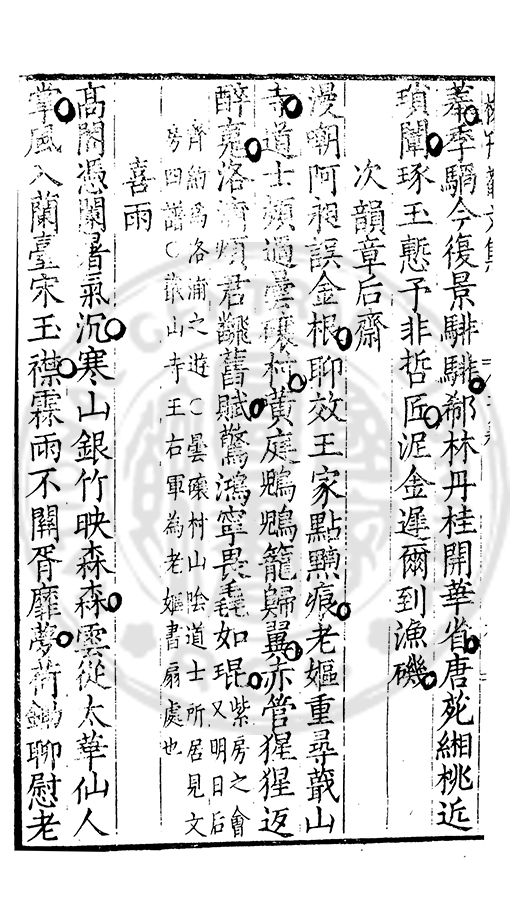 羣季驕今復景騑騑郗林丹桂開華省唐苑緗桃近
瑣闈琢玉慙予非哲匠泥金遲爾到漁磯
次韻章后齋
漫嘲阿昶誤金根聊效王家點黥痕老嫗重尋蕺山
寺道士頻過曇𥖎村黃庭鵝鵝籠歸翼赤管猩猩返
醉魂洛濟煩君翻舊賦驚鴻寧畏毳如琨紫房之會又明日后
齊約爲洛浦之遊○曇𥖎村山陰道士所居見文
房四譜○蕺山寺王右軍為老嫗書扇處也
喜雨
高閣憑闌暑氣沉寒山銀竹映森森雲從太華仙人
掌風入蘭臺宋玉襟霖雨不關胥靡夢荷鋤聊慰老